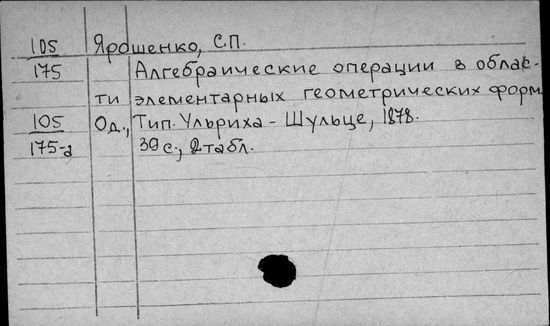 105 Ярошенко, С.П.
175 Алгебраические операции в облас-
ти элементарных геометрических форм.
105 Од., Тип. Ульриха - Шульце, 1878.
175-а 39 с., 2 табл.